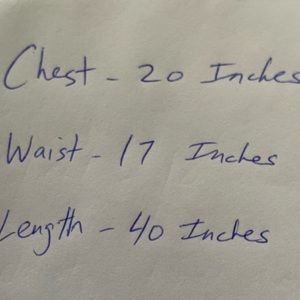 Chest - 20 Inches
Waist - 17 Inches
Length - 40 Inches